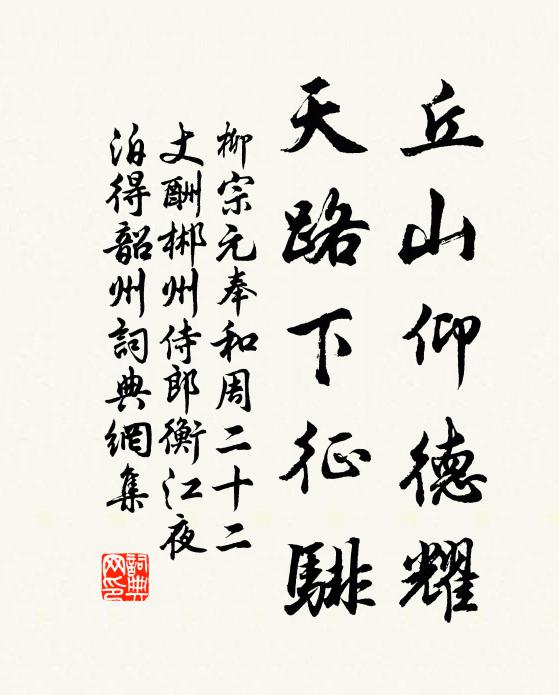 丘山仰德耀
天路下征騑
柳宗元奉和周二十二
丈酬郴州侍郎衡江夜
泊得韶州詞典網集
詞典
网印